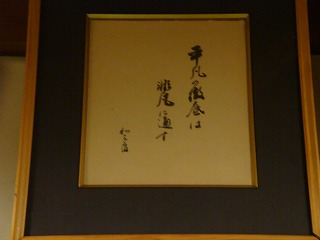 平凡の徹底は
非凡に通ず